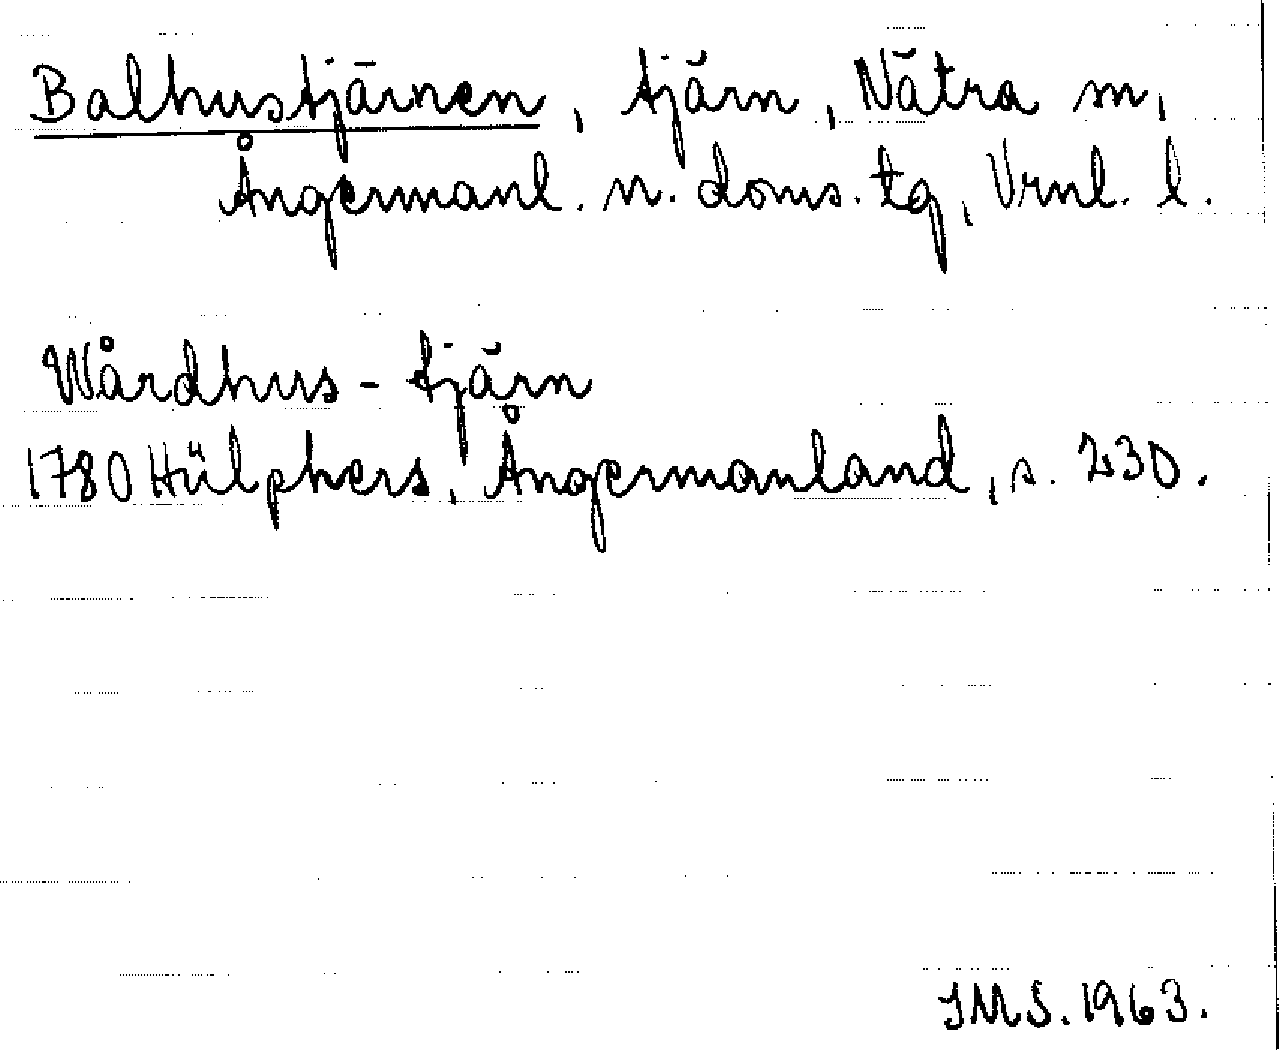 Balhustjärnen, tjärn, Nätra sn,
Ångermanl. n. doms. tg, Vrnl. l.
Wårdhus-tjärn
1780 Hülphers, Ångermanland, s. 230.
JMS. 1963.